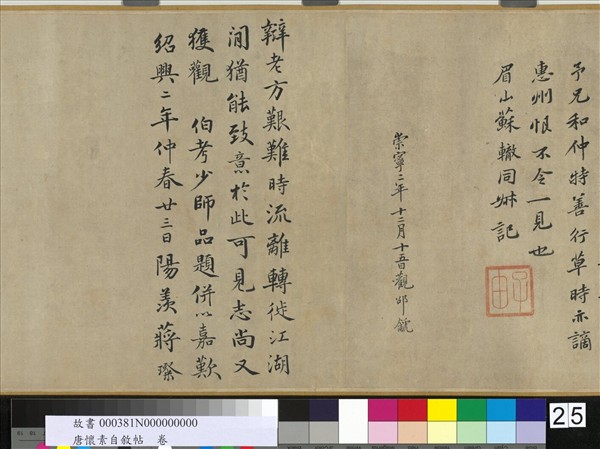 予兄和仲特善行草時亦謫
惠州恨不令一見也
眉山蘇轍同叔記
子由
崇寧二年十二月十五日觀邵𩷶
辯老方艱難時流離轉徙江湖
間猶能致意於此可見志尚又
獲觀 伯考少師品題併以嘉歎
紹興二年仲春廿三日陽羨蔣璨
故書 000381N000000000
唐懷素自敘帖 卷
25